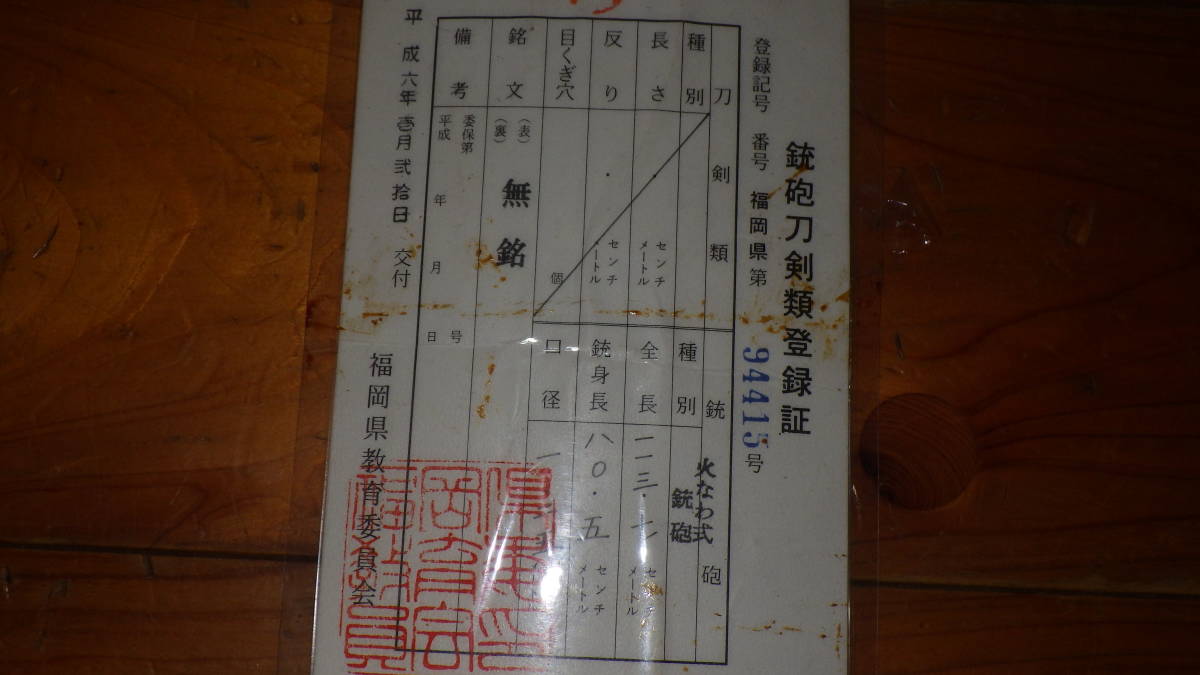 銃砲刀剣類登録証
登録記号 番号 福岡県第 94415 号
刀剣類
種別
長さ ・ センチメートル
反り ・ センチメートル
目くぎ穴 個
銃砲
種別 火なわ式銃砲
全長 一一三・七 センチメートル
銃身長 八〇・五 センチメートル
口径 一
銘文 (表) (裏) 無銘
備考 委保第 号
平成 年 月 日
平成六年壱月弐拾日 交付
福岡県教育委員会